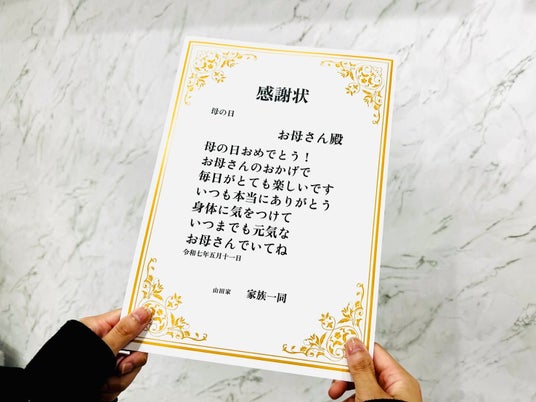 感謝状
母の日
お母さん殿
母の日おめでとう！
お母さんのおかげで
毎日がとても楽しいです
いつも本当にありがとう
身体に気をつけて
いつまでも元気な
お母さんでいてね
令和七年五月十一日
山田家 家族一同